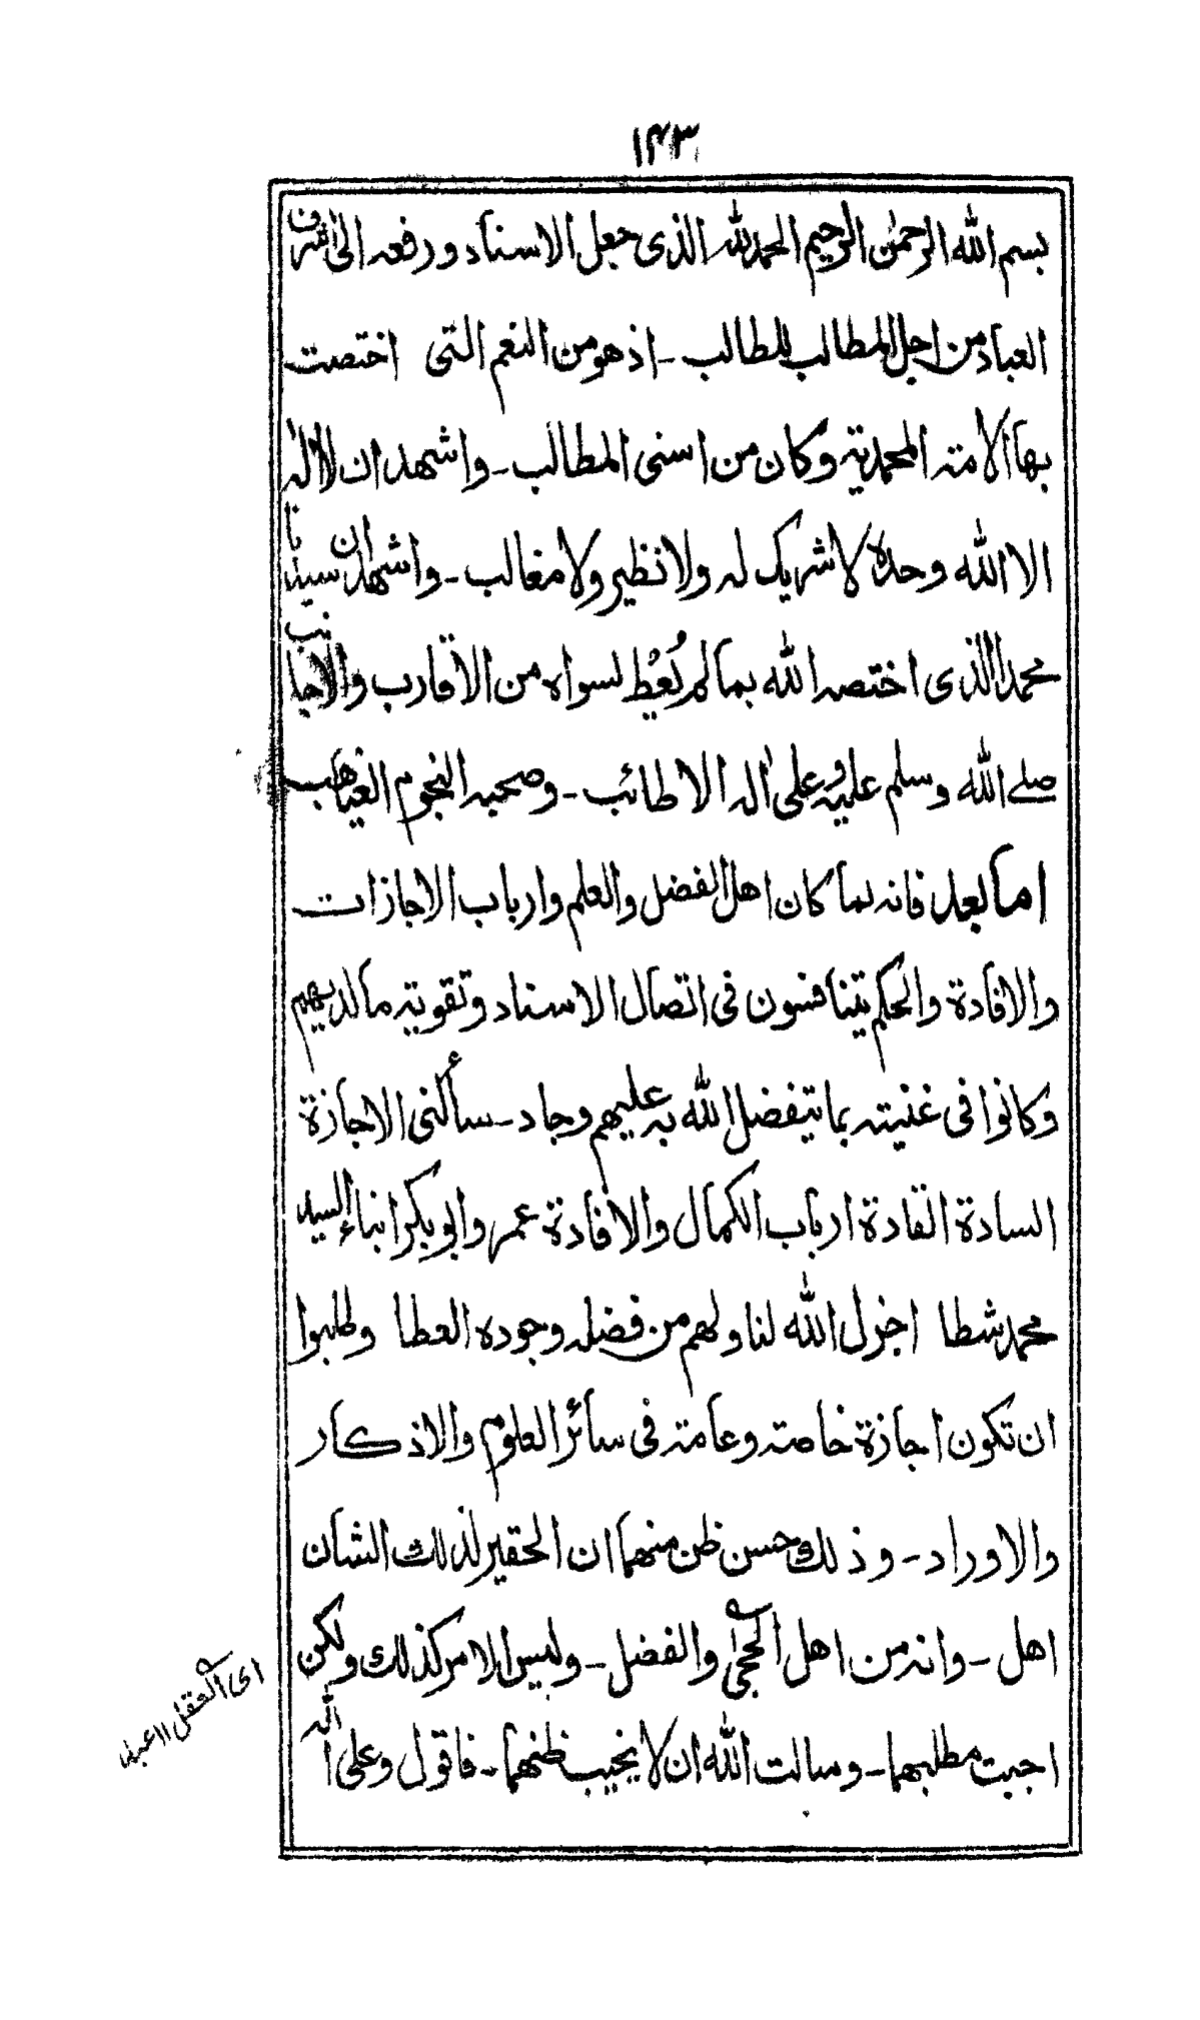 ١٤٣
بسم الله الرحمٰن الرحيم الحمد لله الذى جعل الاسناد ورفعه الى اشرف
العباد من اجل المطالب للطالب - اذ هو من النعم التى اختصت
بها الامته المحمديته وكان من اسنى المطالب - واشهد ان لا اله
الا الله وحده لا شريك له ولا نظير ولا مغالب - واشهد ان سيدنا
محمدا الذى اختصه الله بما لم يُعْط لسواه من الاقارب والاجانب
صلے الله وسلم عليه وعلى اٰله الاطائب - وصحبه النجوم الغياهب
اما بعد فانه لما كان اهل الفضل والعلم وارباب الاجازات
والافادة والحكم يتنافسون فى اتصال الاسناد وتقويته ما لديهم
وكانوا فى غنيته بما يتفضل الله به عليهم وجاد - سألنى الاجازة
السادة القادة ارباب الكمال والافادة عمر وابو بكر ابناء السيد
محمد شطا اجزل الله لنا ولهم من فضله وجوده العطا وطلبوا
ان تكون اجازة خاصته وعامته فى سائر العلوم والاذكار
والاوراد - وذلك حسن ظن منهما ان الحقير لذلك الشان
اهل - وانه من اهل الحجى والفضل - وليس الامر كذلك ولكن
اجبت مطلبهما - وسالت الله ان لا يخيب ظنهما - فاقول وعلى الله
اى العقل ١١ عبد